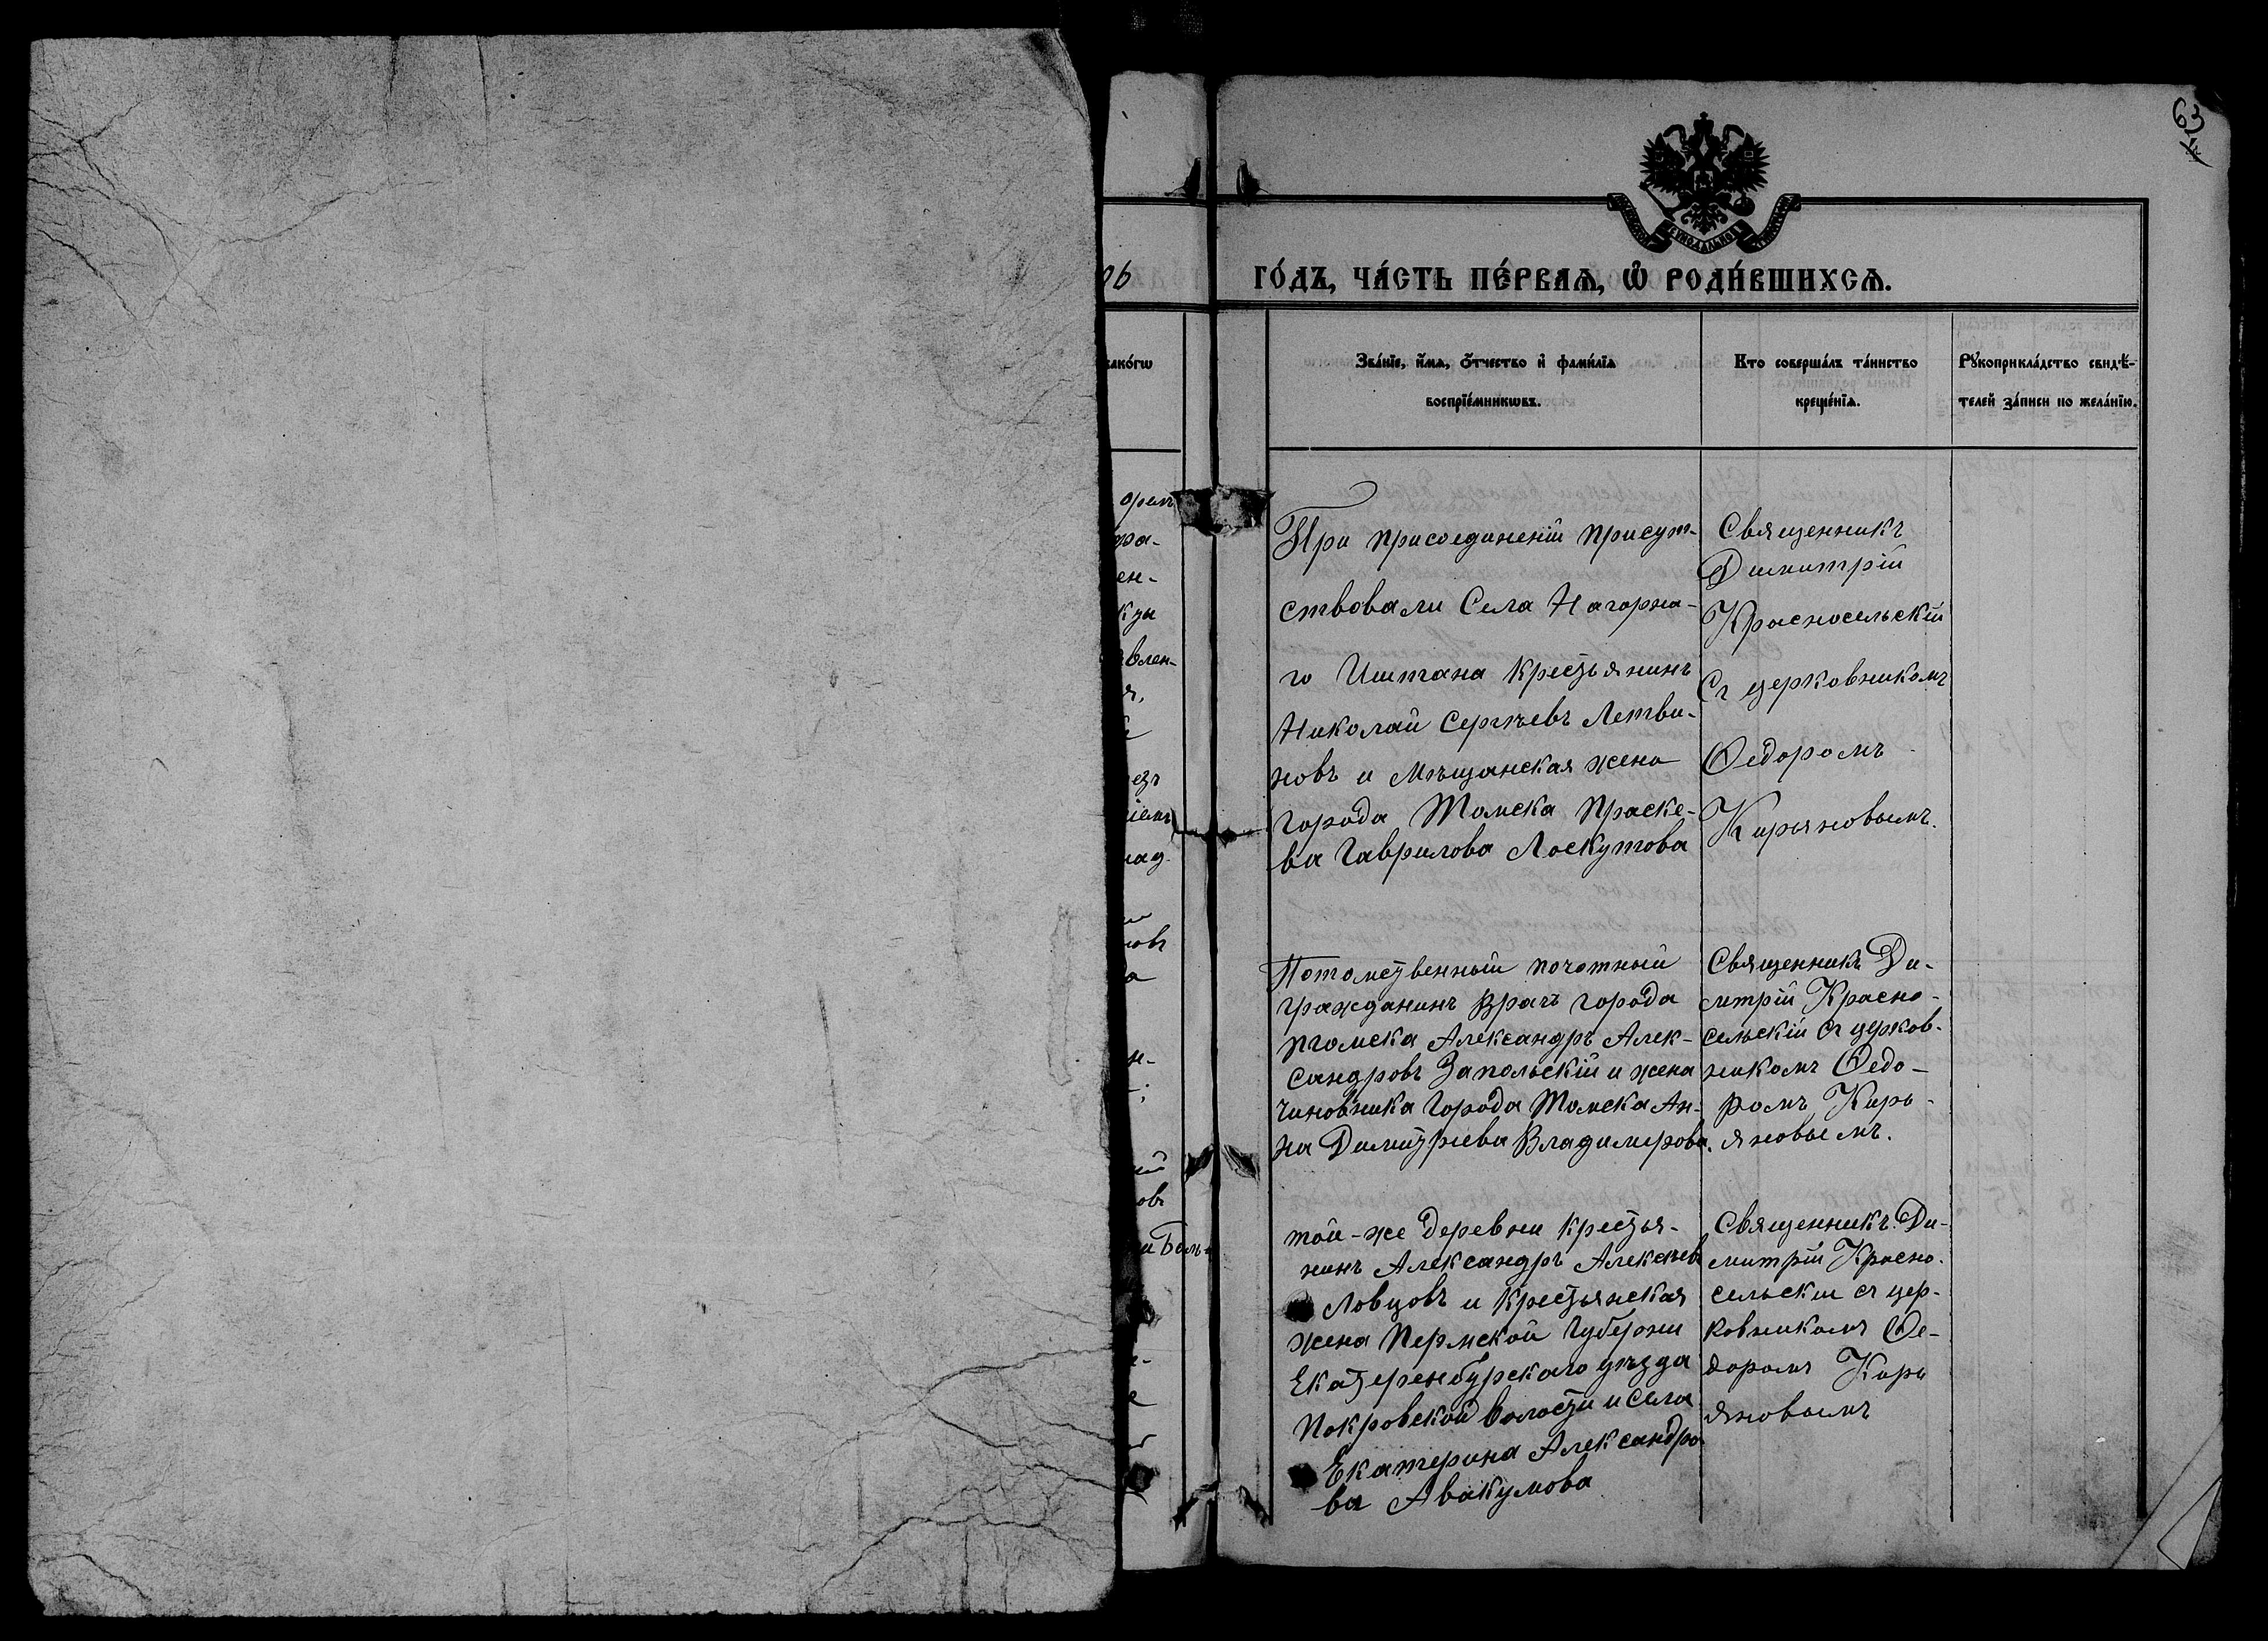 63
об
ГО́ДЪ, ЧА́СТЬ ПЕ́РВАѦ, Ѽ РОДИ́ВШИХСѦ.
какогѡ
Зва́нїе, и҆́мѧ, ѻ҆́тчество и҆ фами́лїѧ
воспрїе́мникѡвъ.
Кто соверша́лъ та́инство
креще́нїѧ.
Рꙋкоприкла́дство свидѣ́-
телей за́писи по жела́нїю.
При присоединенiи присут-
ствовали Села Нагорна-
го Иштана Крестьянинъ
Николай Сергѣевъ Летви-
новъ и Мѣщанская жена
города Томска Праске-
ва Гаврилова Лоскутова
Священникъ
Димитрiй
Красносельскiй
Съ церковникомъ
Ѳедоромъ
Кирьяновымъ.
Потомственный почотный
гражданинъ Врачъ города
Томска Александръ Алек-
сандровъ Запольскiй и жена
чиновника города Томска Ан-
на Димитрiева Владимирова.
Священникъ Ди-
митрiй Красно-
сельскiй съ церков-
никомъ Ѳедо-
ромъ Кирь-
яновымъ.
той-же деревни крестья-
нинъ Александръ Алексѣевъ
Ловцовъ и крестьянская
жена Пермской Губернiи
Екатеренбурскаго уѣзда
Покровской волости и села
Екатерина Александро
ва Авакумова
Священникъ Ди-
митрiй Красно-
сельскiи съ цер-
ковникомъ Ѳе-
доромъ Кирь
яновымъ